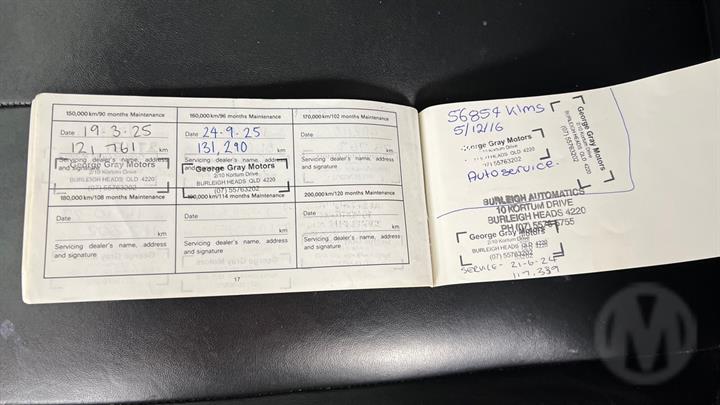 150,000 km/90 months Maintenance
Date 19.3.25
121,761 km
Servicing dealer's name, address and signature
George Gray Motors
2/10 Kortum Drive
BURLEIGH HEADS QLD 4220
(07) 55763202
160,000 km/96 months Maintenance
Date 24.9.25
131,290 km
Servicing dealer's name, address and signature
George Gray Motors
2/10 Kortum Drive
BURLEIGH HEADS QLD 4220
(07) 55763202
170,000 km/102 months Maintenance
Date
km
Servicing dealer's name, address
and signature
180,000 km/108 months Maintenance
Date
km
Servicing dealer's name, address
and signature
190,000 km/114 months Maintenance
Date
km
Servicing dealer's name, address
and signature
200,000 km/120 months Maintenance
Date
km
Servicing dealer's name, address
and signature
17
56854 klms
5/12/16
George Gray Motors
(07) 55763202
Auto service.
George Gray Motors
2/10 Kortum Drive
BURLEIGH HEADS QLD 4220
(07) 55763202
BURLEIGH AUTOMATICS
10 KORTUM DRIVE
BURLEIGH HEADS 4220
PH (07) 5576 6755
George Gray Motors
2/10 Kortum Drive
BURLEIGH HEADS QLD 4220
(07) 55763202
SERVICE - 21-6-24
117,339
M